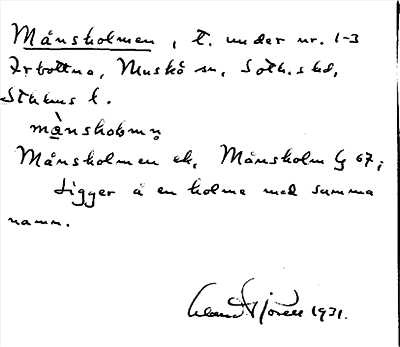 Månsholmen, t. under nr. 1-3
Arbottna, Muskö sn, Soth.s hd,
Sthlms l.
månshòḷmṇ
Månsholmen ek, Månsholm Gj 67;
Ligger å en holme med samma
namn.
1931.